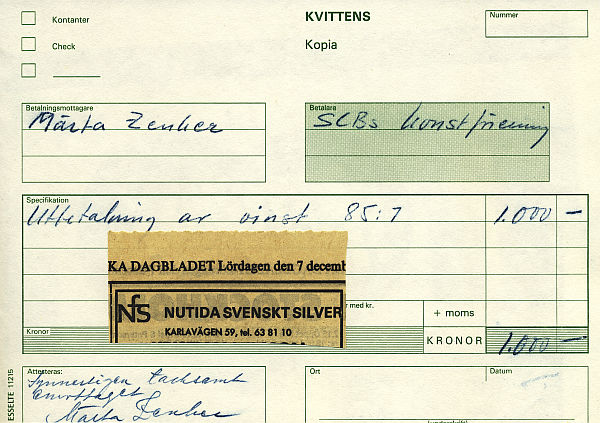 KVITTENS
Nummer
Kontanter
Kopia
Check
Betalningsmottagare
Märta Zenker
Betalare
SCBs konstförening
Specifikation
Utbetalning av vinst 85:1
1.000 —
KA DAGBLADET Lördagen den 7 decemb
NfS NUTIDA SVENSKT SILVER
KARLAVÄGEN 59, tel. 63 81 10
er med kr.
+ moms
Kronor
KRONOR
1.000 —
Attesteras:
Synnerligen tacksamt
emottaget
Märta Zenker
Ort
Datum
ESSELTE 11215